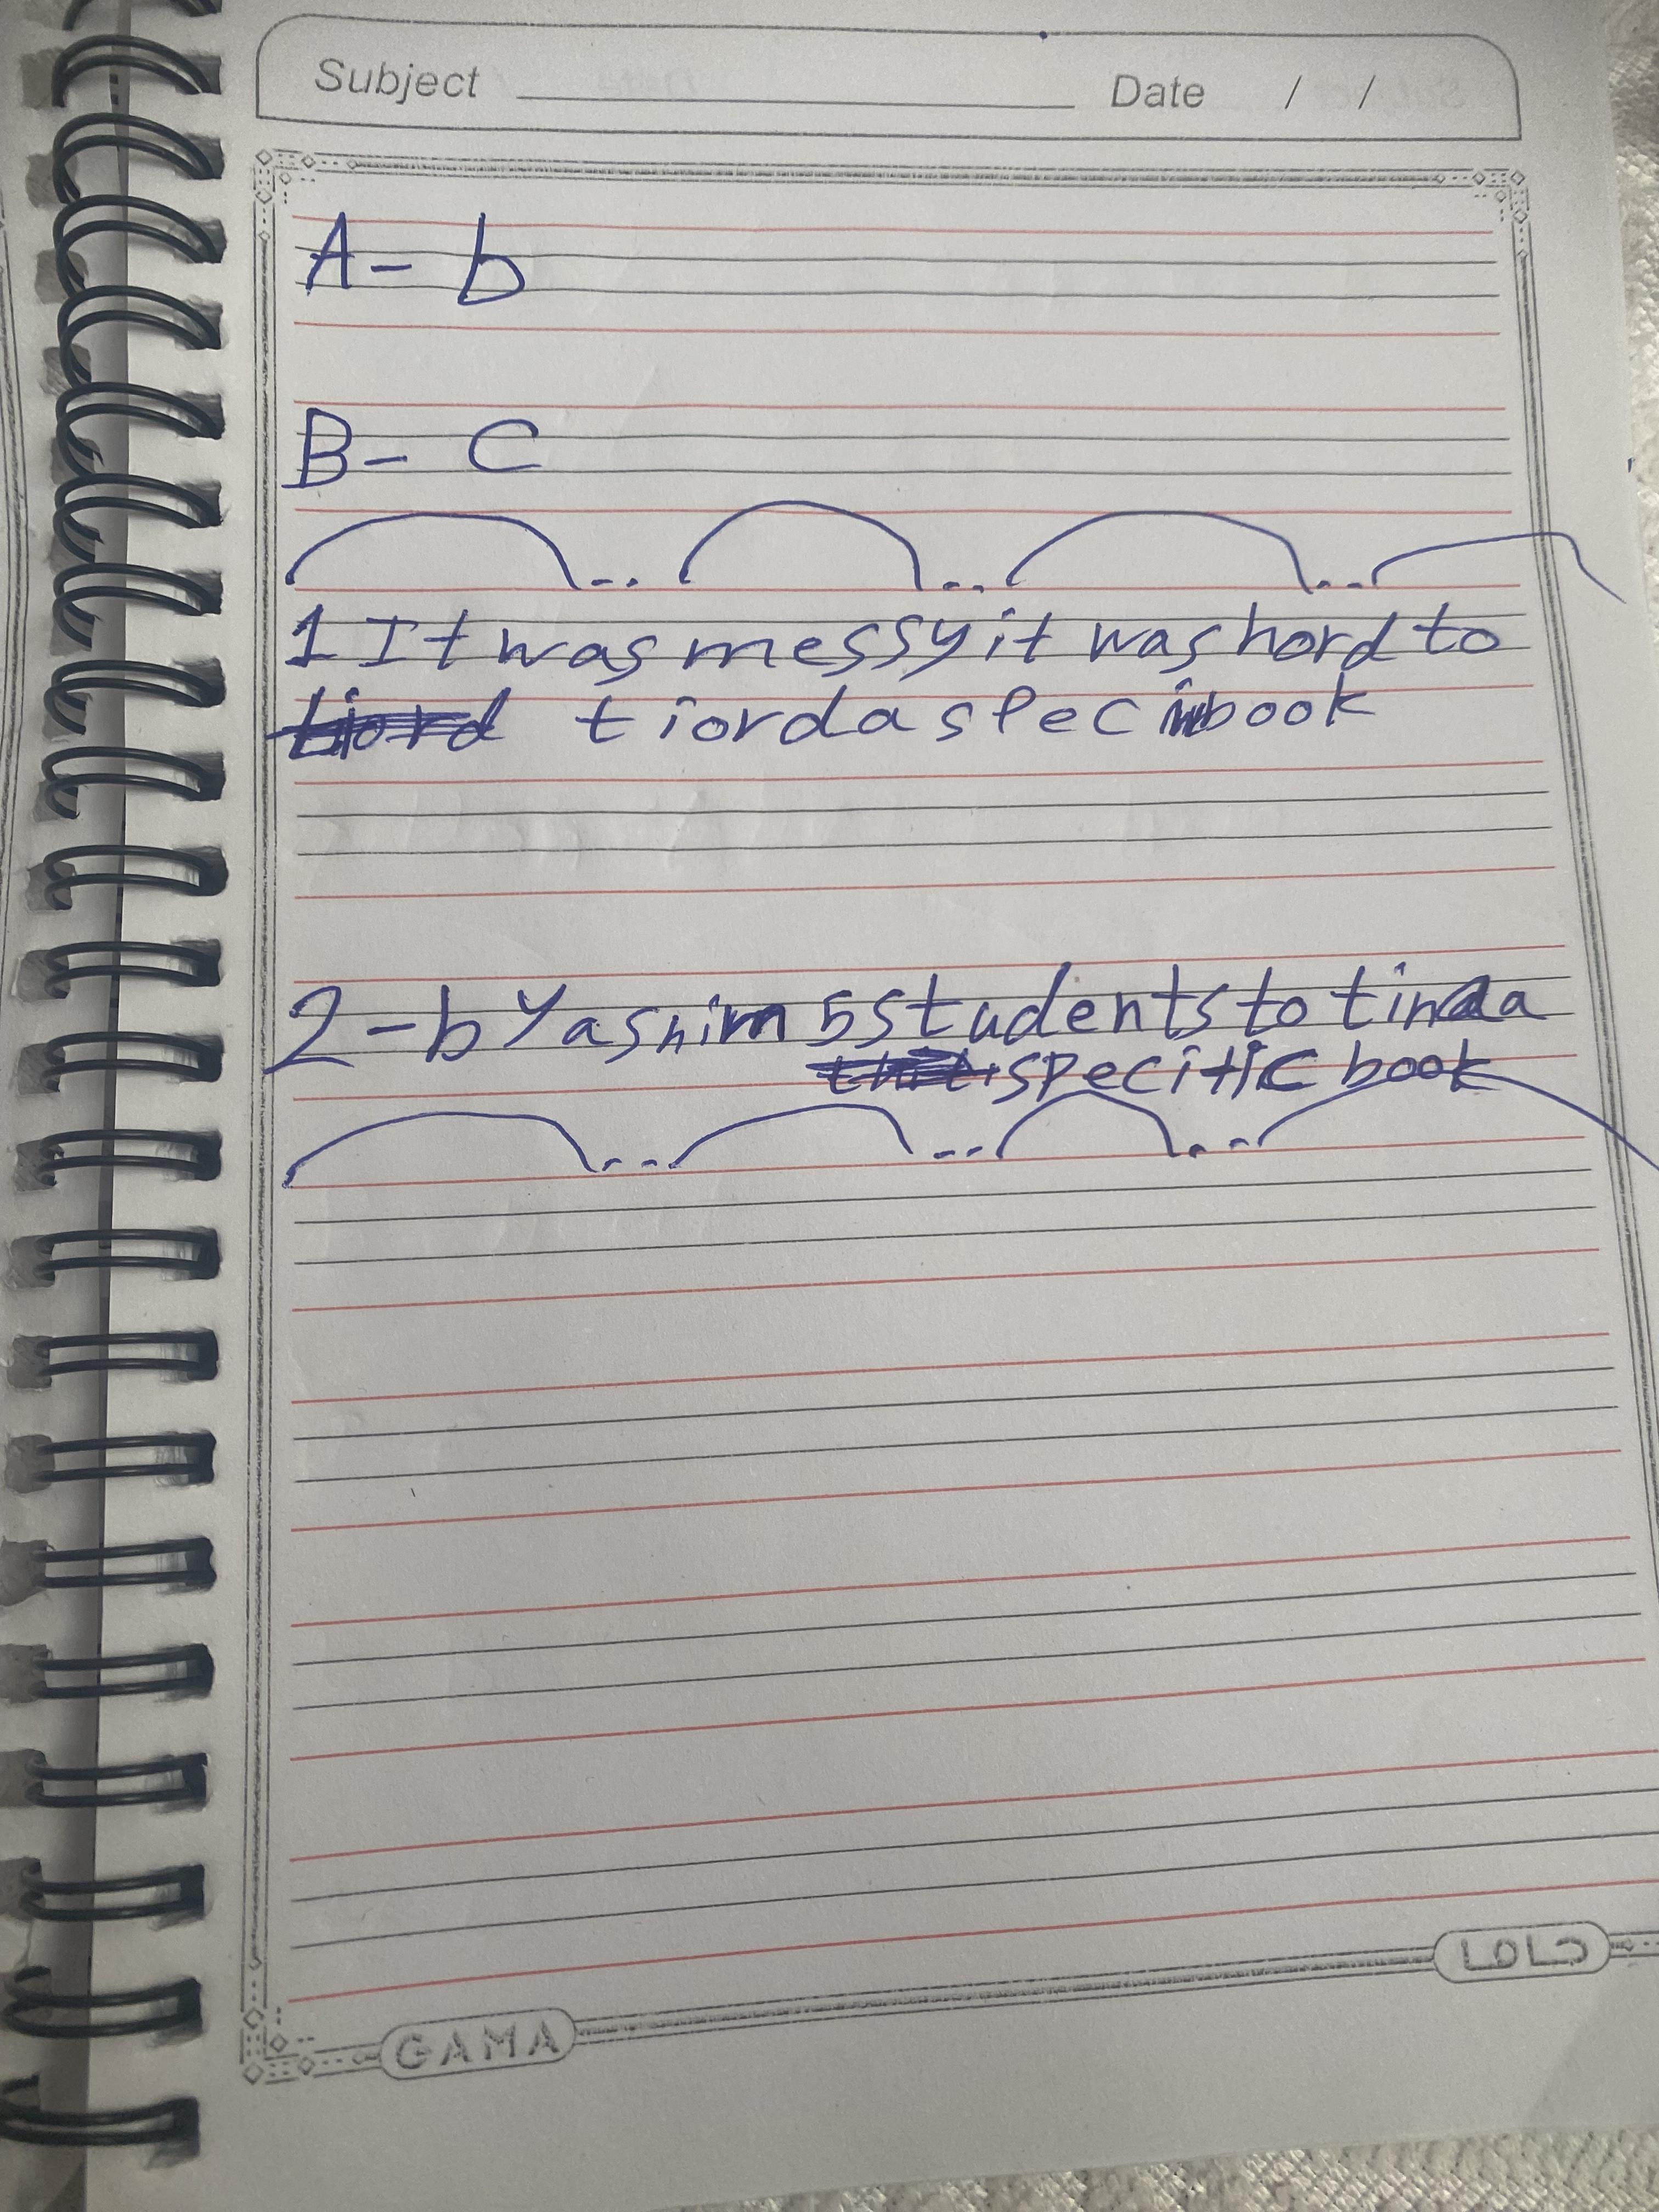 Subject Date / /
A- b
B- C
1 It was messy it was hord to
tiord a spec book
2-by asnim 5 students to tinda
specitic book
GAMA